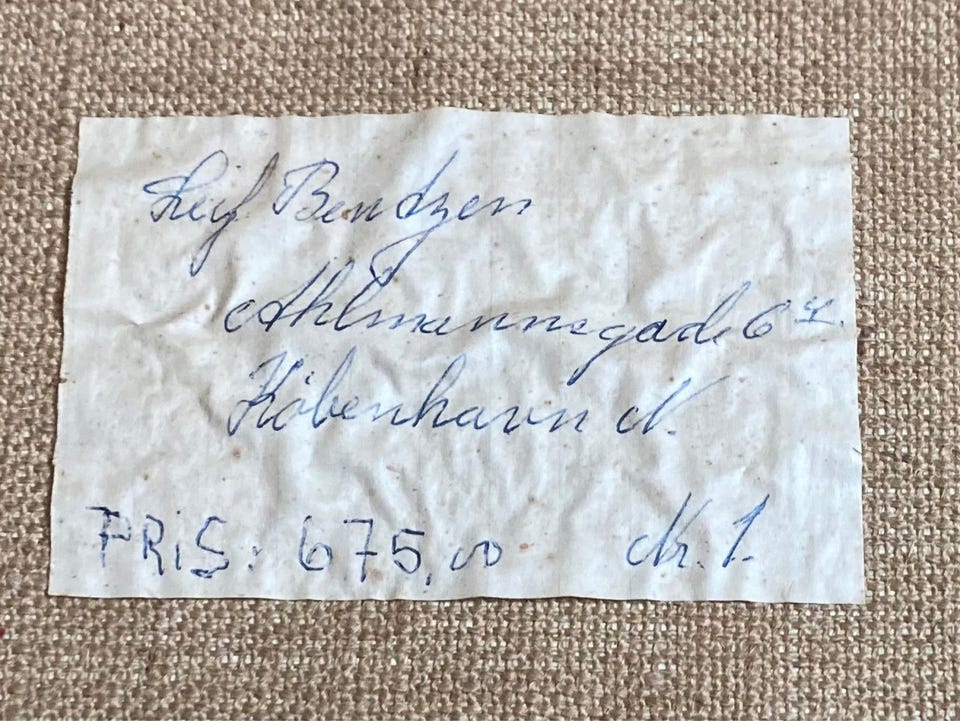 Leif Bentzen
Ahlmannsgade 6
København N.
PRiS: 675,00 Nr. 1.